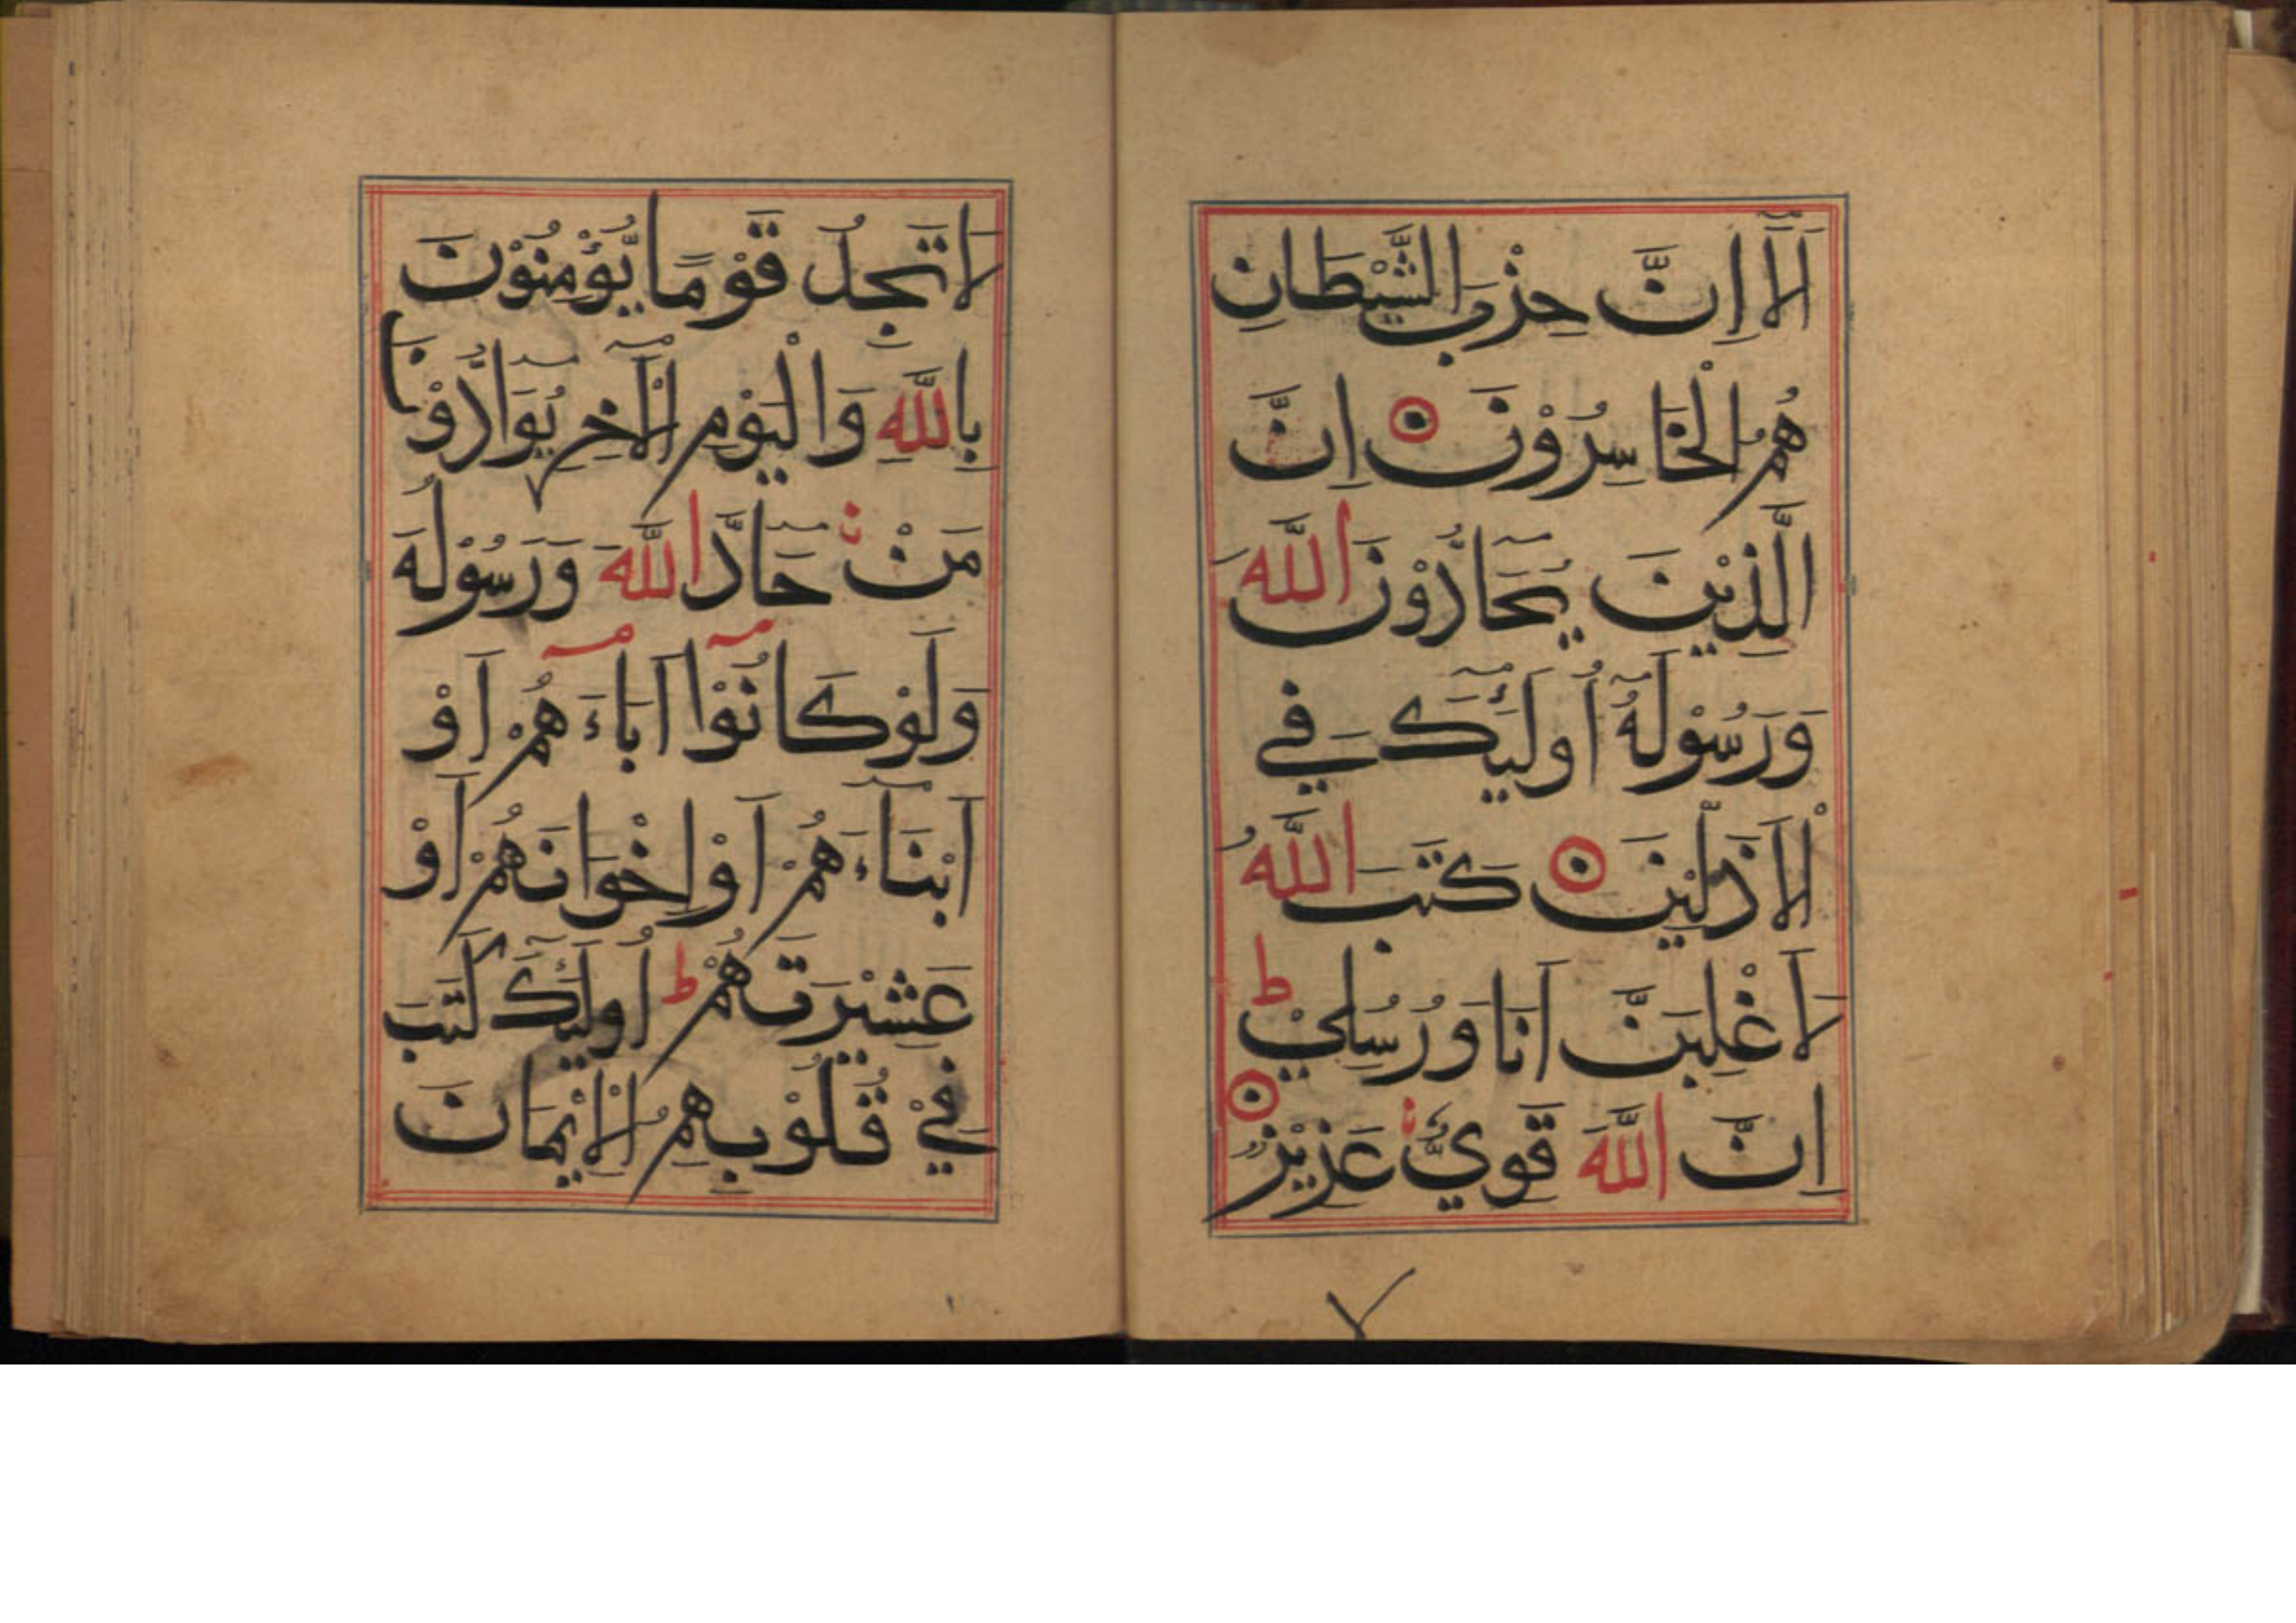 اَلَآ اِنَّ حِزْبَ الشَّيْطَانِ
هُمُ الْخَاسِرُوْنَ ۝ اِنَّ
الَّذِيْنَ يُحَآدُّوْنَ اللّٰهَ
وَرَسُوْلَهٗٓ اُولٰٓئِكَ فِي
الْاَذَلِّيْنَ ۝ كَتَبَ اللّٰهُ
لَاَغْلِبَنَّ اَنَا وَرُسُلِيْ ؕ
اِنَّ اللّٰهَ قَوِيٌّ عَزِيْزٌ ۝
لَا تَجِدُ قَوْمًا يُّؤْمِنُوْنَ
بِاللّٰهِ وَالْيَوْمِ الْاٰخِرِ يُوَآدُّوْنَ
مَنْ حَآدَّ اللّٰهَ وَرَسُوْلَهٗ
وَلَوْ كَانُوْٓا اٰبَآءَهُمْ اَوْ
اَبْنَآءَهُمْ اَوْ اِخْوَانَهُمْ اَوْ
عَشِيْرَتَهُمْ ؕ اُولٰٓئِكَ كَتَبَ
فِيْ قُلُوْبِهِمُ الْاِيْمَانَ